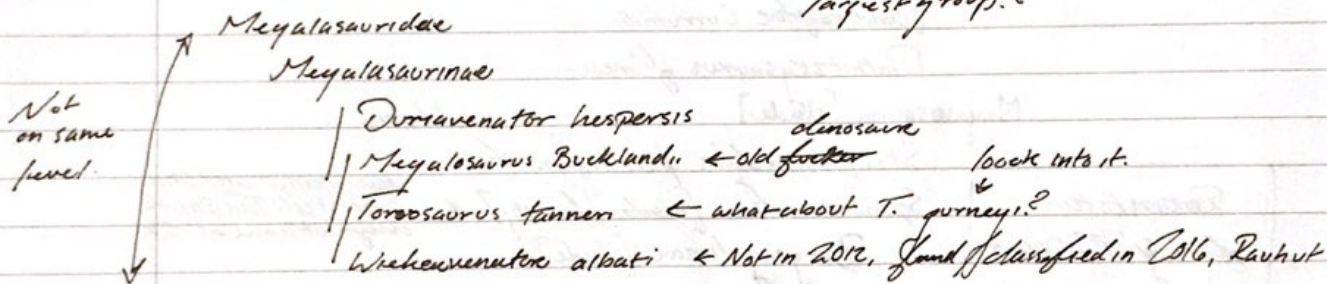 largest group.?
Megalasauridae
Megalasaurinae
Not
on same
level.
Duriavenator hespersis
dinosaure
Megalosaurus Bucklandii ← old fucker
look into it.
Torvosaurus tanneri ← what about T. gurneyi?
Wiehenvenator albati ← Not in 2012, found & classified in 2016, Rauhut